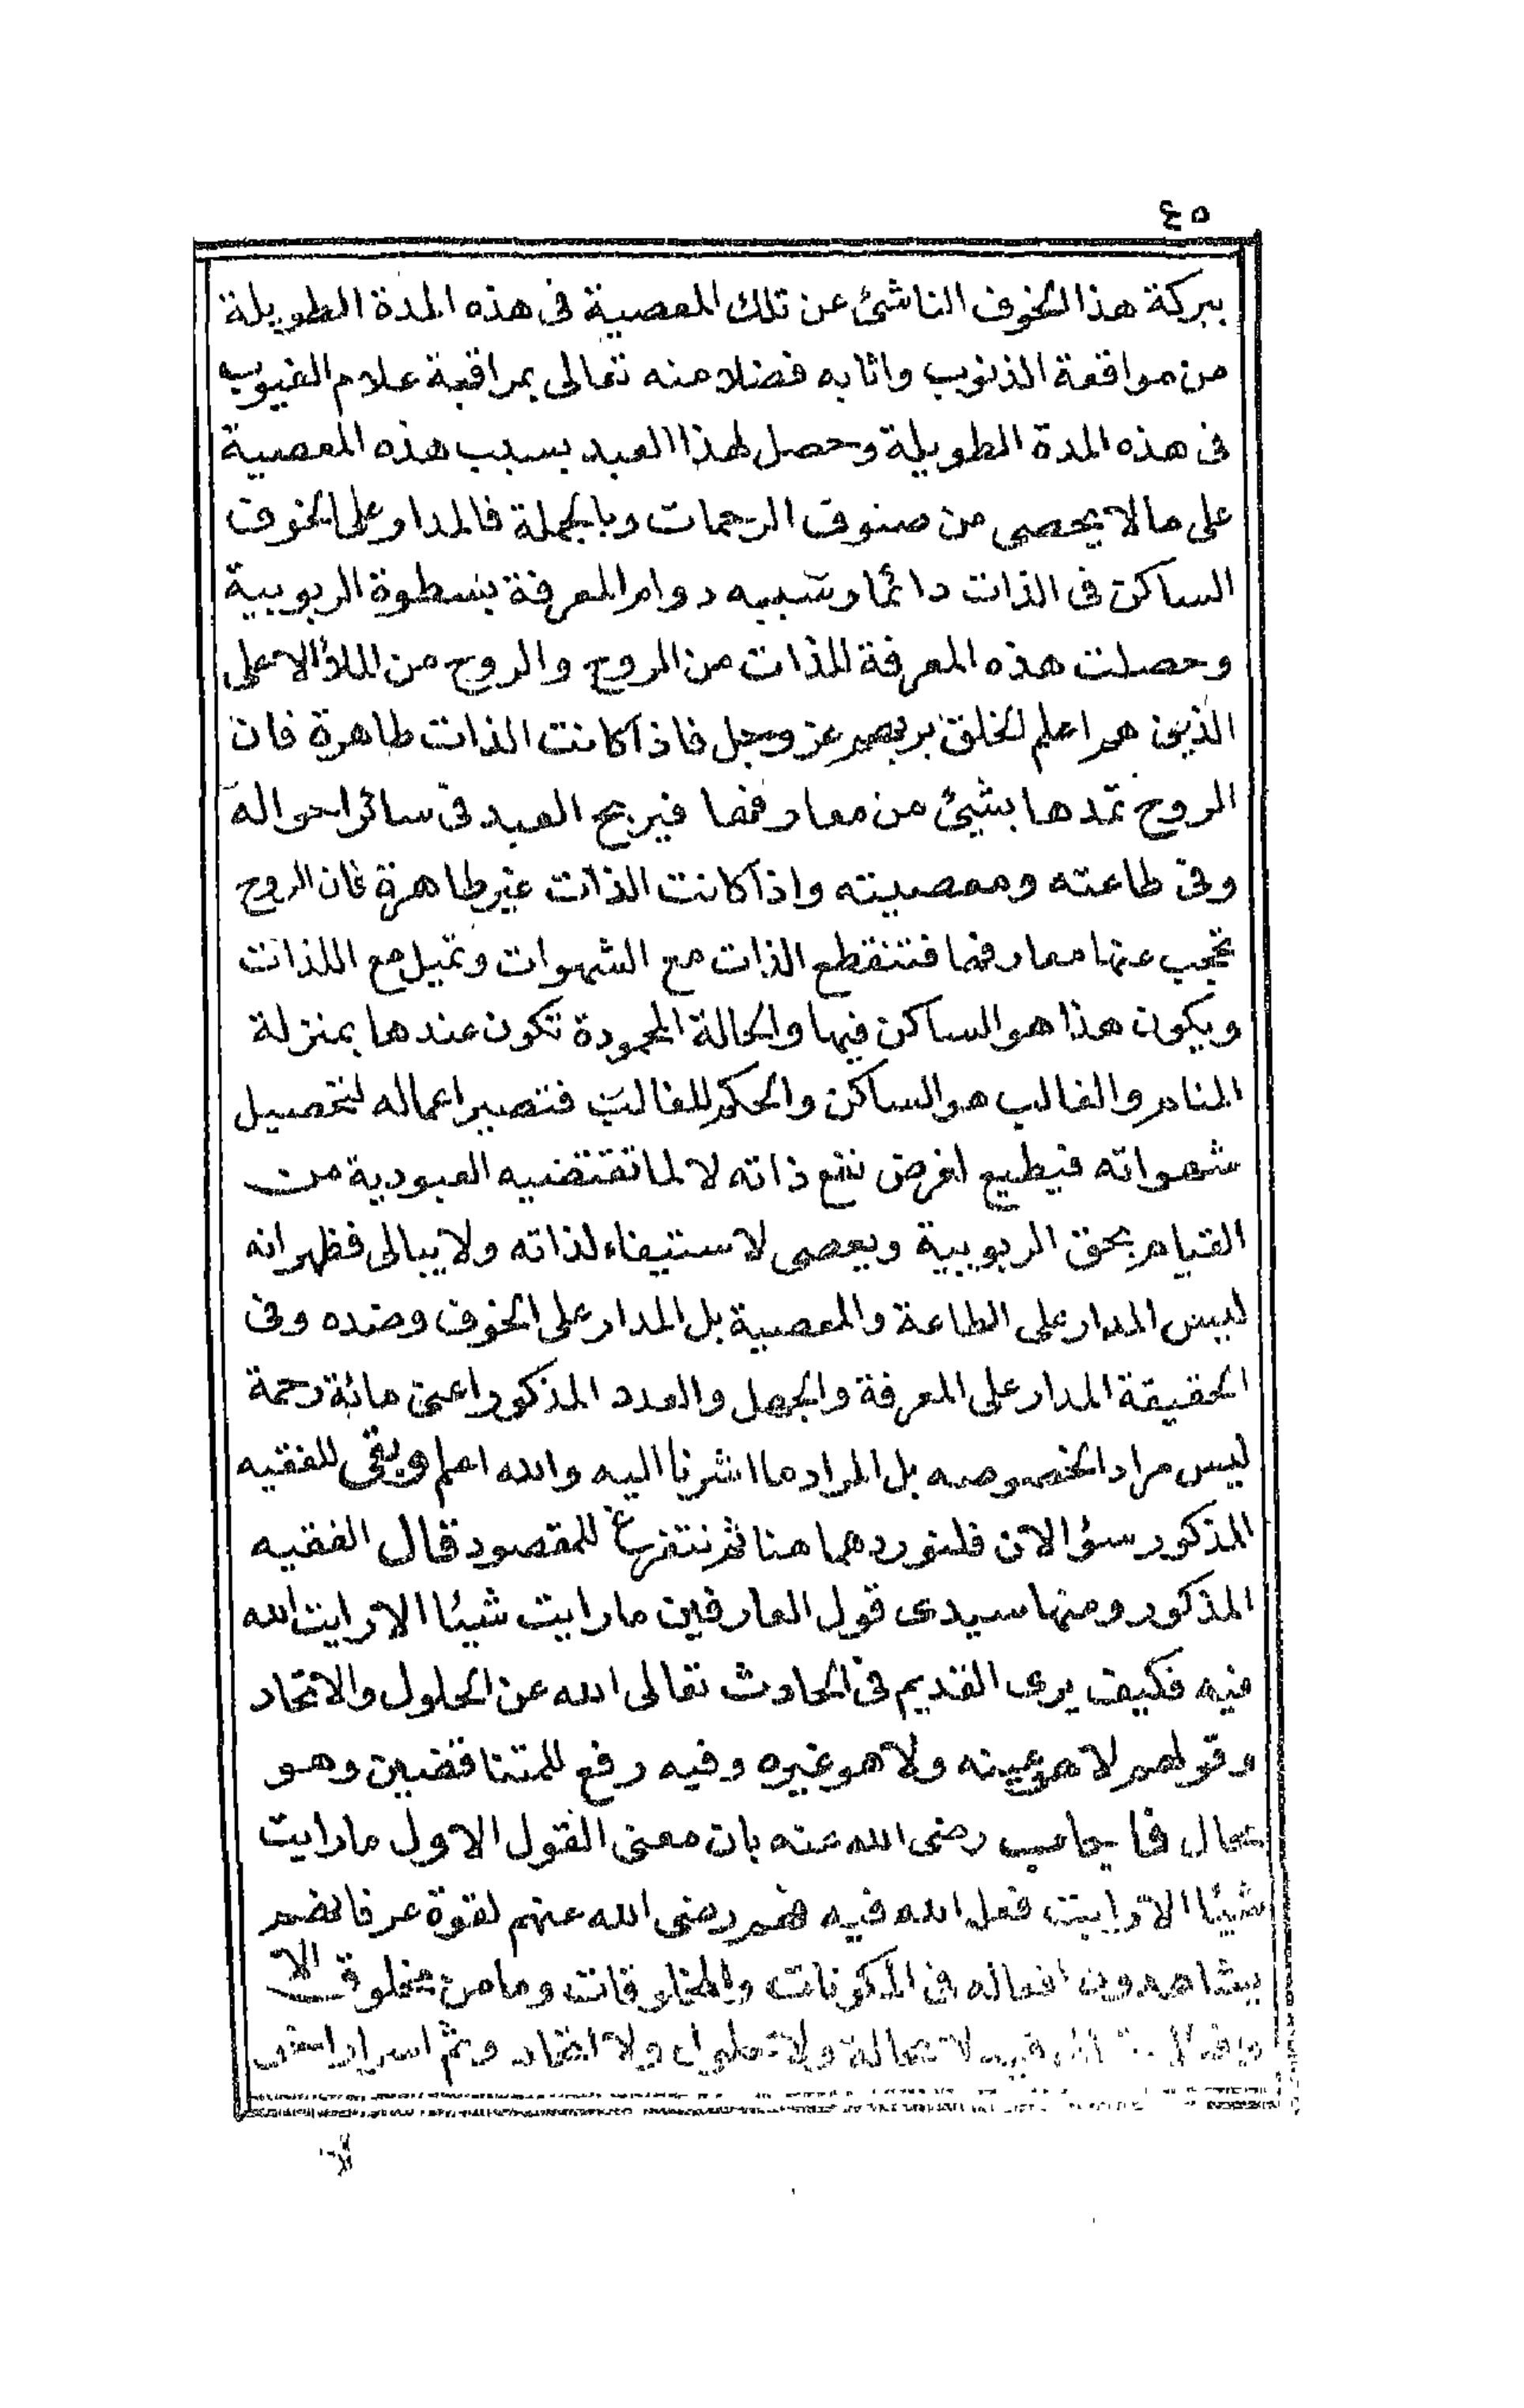 ٤٥
ببركة هذا الخوف الناشئ عن تلك المعصية فى هذه المدة الطويلة
من مواقعة الذنوب واثابه فضلا منه تعالى بمراقبة علام الغيوب
فى هذه المدة الطويلة وحصل لهذا العبد بسبب هذه المعصية
على ما لا يحصى من صنوف الرحمات وبالجملة فالمدار على الخوف
الساكن فى الذات دائما وسببه دوام المعرفة بسطوة الربوبية
وحصلت هذه المعرفة للذات من الروح والروح من الملأ الاعلى
الذين هم اعلم الخلق بربهم عز وجل فاذا كانت الذات طاهرة فان
الروح تمدها بشيئ من معارفها فيربح العبد فى سائر احواله
وفى طاعته ومعصيته واذا كانت الذات غير طاهرة فان الروح
تحجب عنها معارفها فتنقطع الذات مع الشهوات وتميل مع اللذات
ويكون هذا هو الساكن فيها والحالة المحمودة تكون عندها بمنزلة
النادر والغالب هو الساكن والحكم للغالب فتصير اعماله لتحصيل
شهواته فيطيع لغرض نفع ذاته لا لما تقتضيه العبودية من
القيام بحق الربوبية ويعصى لاستيفاء لذاته ولا يبالى فظهر انه
ليس المدار على الطاعة والمعصية بل المدار على الخوف وضده وفى
الحقيقة المدار على المعرفة والجهل والعدد المذكور اعنى مائة رحمة
ليس مراد الخصوصه بل المراد ما اشرنا اليه والله اعلم وبقى للفقيه
المذكور سؤالان فلنوردهما هنا ثم نتفرغ للمقصود قال الفقيه
المذكور ومنها سيدى قول العارفين ما رايت شيئا الا رايت الله
فيه فكيف يرى القديم فى الحادث تعالى الله عن الحلول والاتحاد
وقولهم لا هو عينه ولا هو غيره وفيه رفع للمتناقضين وهو
محال فاجاب رضى الله عنه بان معنى القول الاول ما رايت
شيئا الا رايت فعل الله فيه فهم رضى الله عنهم لقوة عرفانهم
يشاهدون افعاله فى المكونات والمخلوقات وما من مخلوق الا
فيه لا محالة ولا حلول ولا اتحاد وثم اسرار اخر